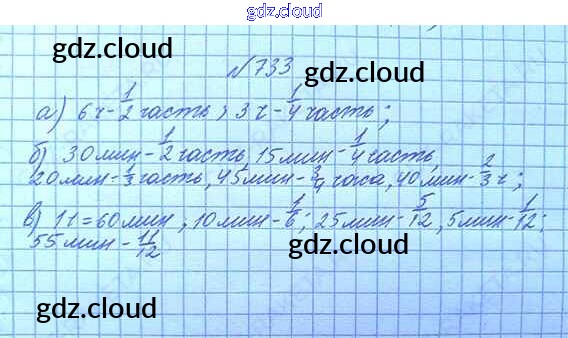 gdz.cloud
gdz.cloud
№733
gdz.cloud
а) 6ч - 1/2 часть; 3ч - 1/4 часть;
б) 30 мин - 1/2 часть, 15 мин - 1/4 часть,
20 мин - 1/3 часть, 45 мин - 3/4 часа, 40 мин - 2/3 ч;
в) 1ч = 60 мин, 10 мин - 1/6; 25 мин - 5/12, 5 мин - 1/12;
55 мин - 11/12
gdz.cloud
gdz.cloud